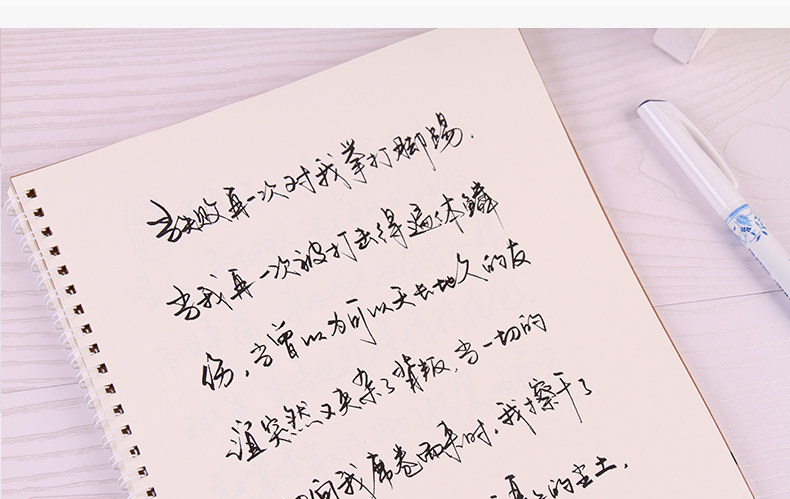 当失败再一次对我拳打脚踢.
当我再一次被打击得遍体鳞
伤,当曾以为可以天长地久的友
谊突然又夹杂了背叛,当一切的
向我席卷而来时,我擦干了
的尘土.